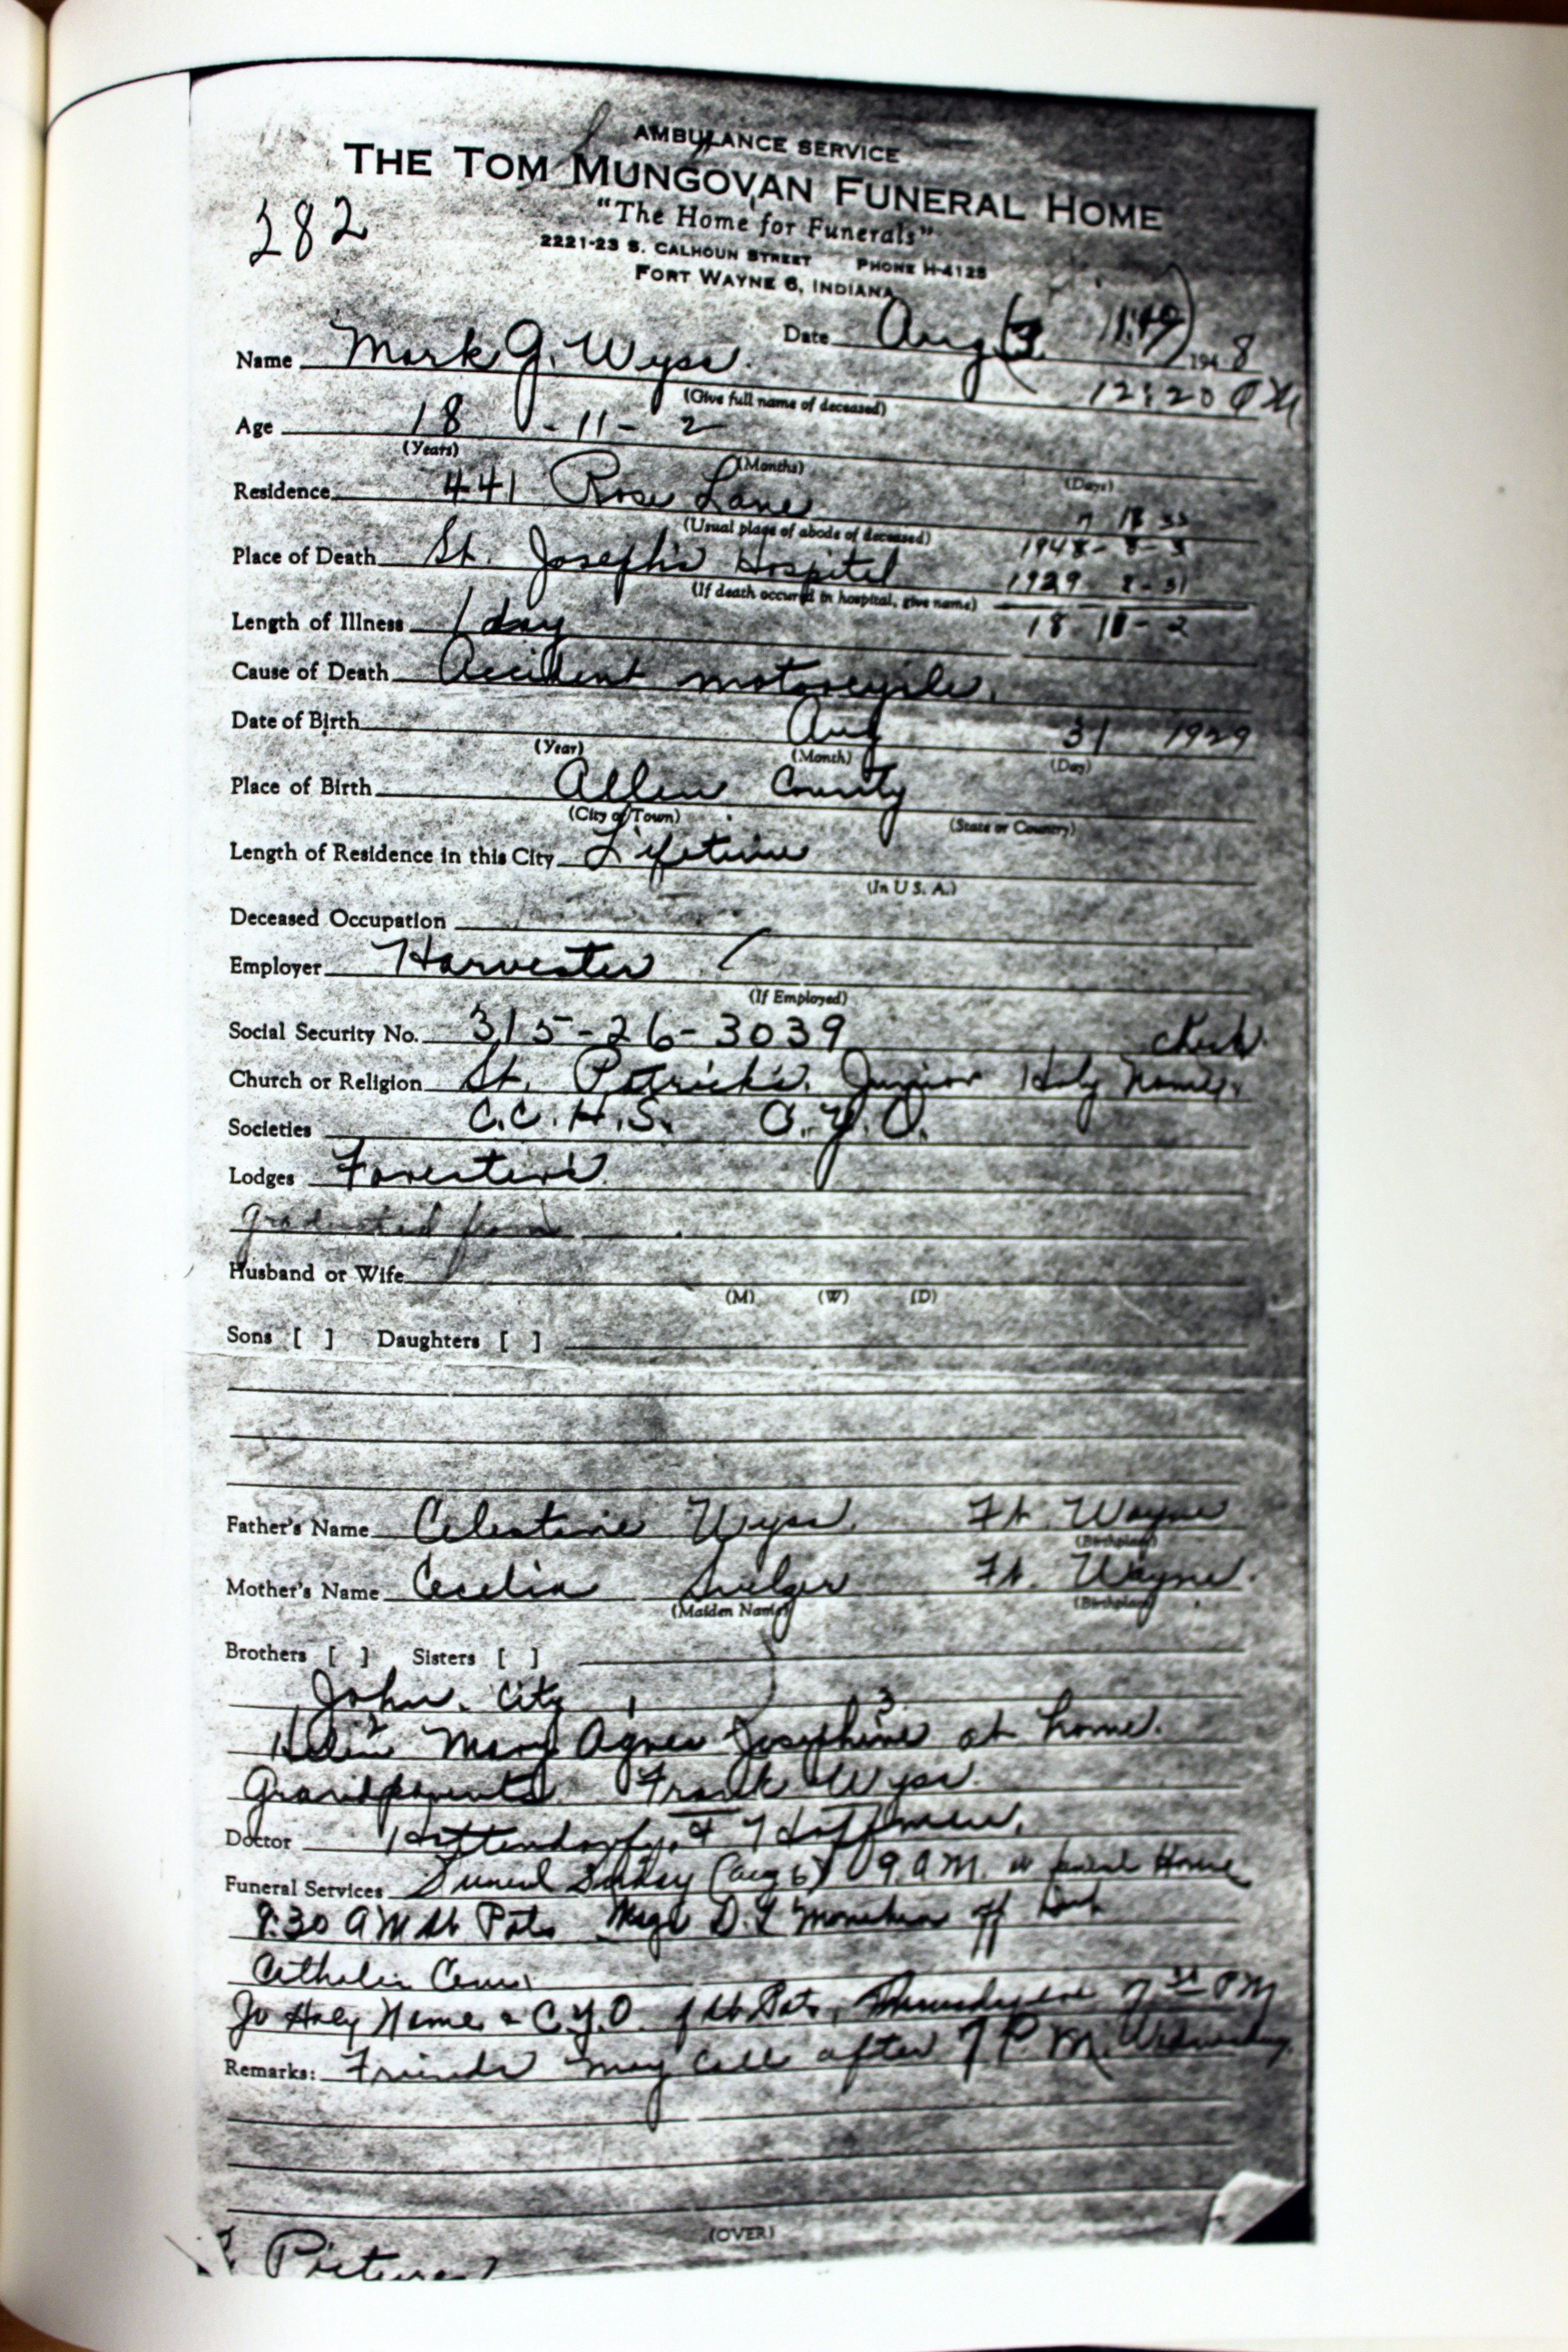 AMBULANCE SERVICE
THE TOM MUNGOVAN FUNERAL HOME
282
"The Home for Funerals"
2221-23 S. CALHOUN STREET PHONE H-4125
FORT WAYNE 6, INDIANA
Date Aug 3 1948
Name Mark G. Wyss.
(Give full name of deceased)
12:20
Age 18 - 11 - 2
(Years) (Months) (Days)
Residence 441 Rose Lane
(Usual place of abode of deceased)
7 18 33
1948 - 8 - 3
Place of Death St. Joseph's Hospital
(If death occured in hospital, give name)
1929 8 - 31
Length of Illness 1 day
18 11 - 2
Cause of Death Accident motorcycle.
Date of Birth Aug 31 1929
(Year) (Month) (Day)
Place of Birth Allen County
(City of Town) (State or Country)
Length of Residence in this City Lifetime
(In U S. A.)
Deceased Occupation
Employer Harvester
(If Employed)
Social Security No. 315-26-3039 check
Church or Religion St. Patrick's. Junior Holy Name.
Societies C.C.H.S. C.Y.O.
Lodges Foresters
graduated from
Husband or Wife
(M) (W) (D)
Sons [ ] Daughters [ ]
Father's Name Celestine Wyss. Ft. Wayne
(Birthplace)
Mother's Name Cecelia Ft. Wayne.
(Maiden Name) (Birthplace)
Brothers [ ] Sisters [ ]
John. City 1
2 Mary Agnes Josephine 3 at home.
Grandparents Frank Wyss.
Doctor & Hoffman.
Funeral Services Funeral (Aug 6) 9 A M. Home
9:30 A M St Pats D. L. Monahan off
Catholic Cem.
Jr Holy Name & C.Y.O. of St Pats, Thursday eve 7 30 PM
Remarks: Friends may call after 7 P. M. Wednesday
(OVER)
Picture